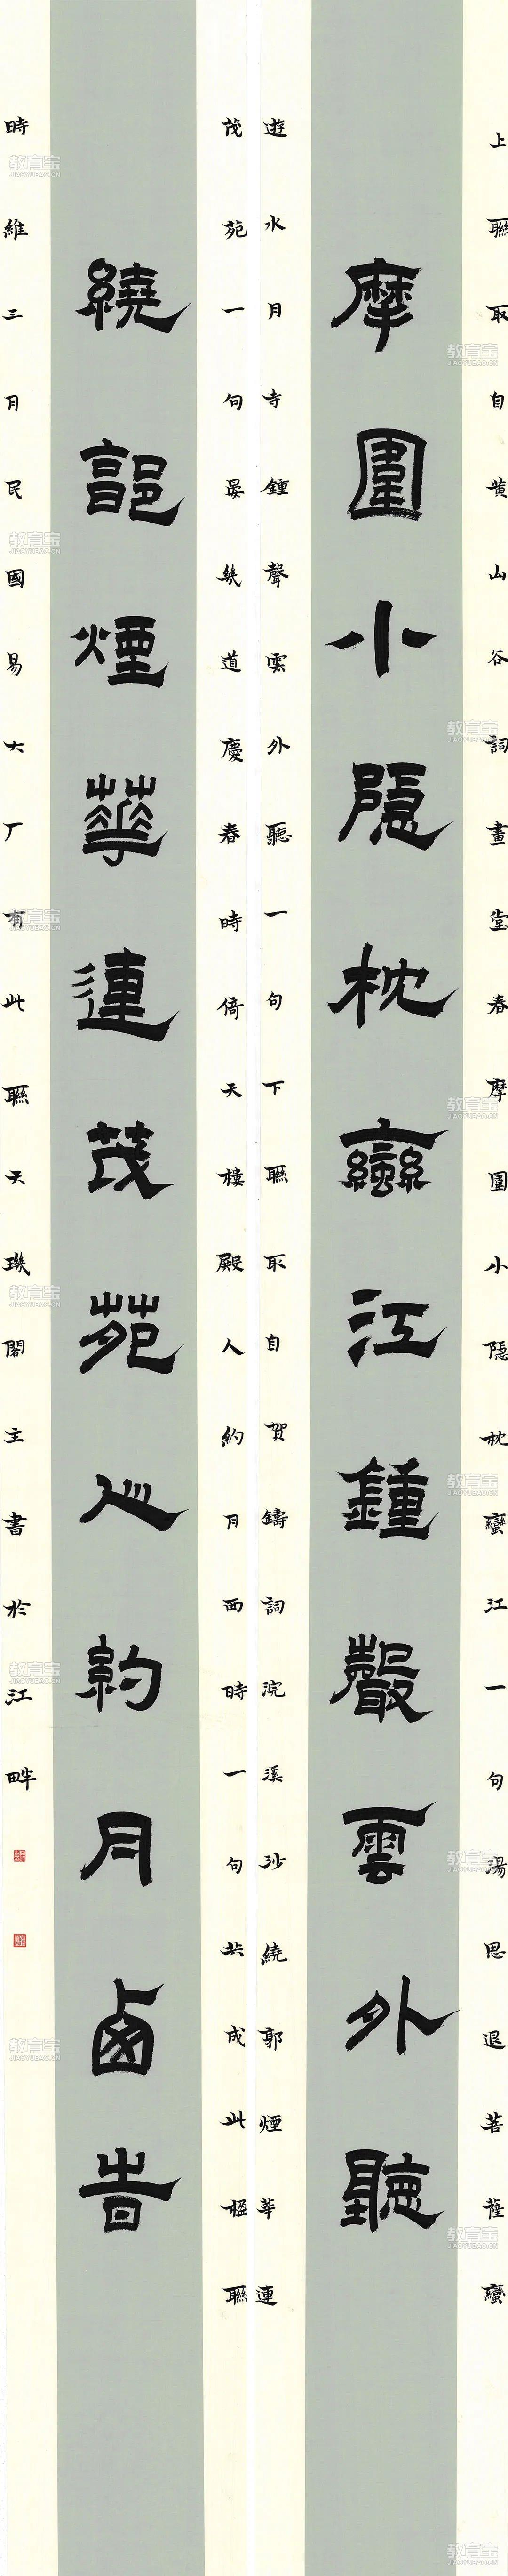 上聯取自黄山谷詞畫堂春摩圍小隱枕蠻江一句湯思退菩薩蠻
摩圍小隱枕蠻江鍾聲雲外聽
遊水月寺鍾聲雲外聽一句下聯取自賀鑄詞浣溪沙繞郭煙華連
茂苑一句晏幾道慶春時倚天樓殿人約月西時一句共成此楹聯
繞郭煙華連茂苑人約月卤旹
時維三月民國易大厂有此聯天璣閣主書於江畔
教育宝
JIAOYUBAO.CN